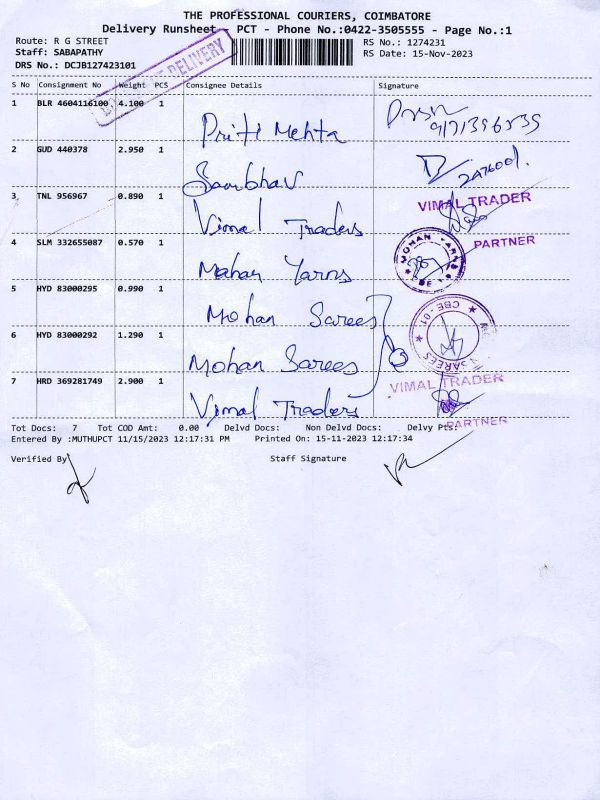 THE PROFESSIONAL COURIERS, COIMBATORE
Delivery Runsheet - PCT - Phone No.:0422-3505555 - Page No.:1
Route: R G STREET
RS No.: 1274231
Staff: SABAPATHY
RS Date: 15-Nov-2023
DRS No.: DCJB127423101
DELIVERY
S No Consignment No Weight PCS Consignee Details Signature
1 BLR 4604116100 4.100 1 Priti Mehta
2 GUD 440378 2.950 1 Saurbhav
3 TNL 956967 0.890 1 Vimal Traders VIMAL TRADER
PARTNER
4 SLM 332655087 0.570 1 Mahan Yarns MOHAN YARNS
5 HYD 83000295 0.990 1 Mohan Sarees CBE-01
6 HYD 83000292 1.290 1 Mohan Sarees SAREES
7 HRD 369281749 2.900 1 Vimal Traders VIMAL TRADER
PARTNER
Tot Docs: 7 Tot COD Amt: 0.00 Delvd Docs: Non Delvd Docs: Delvy Pts:
Entered By :MUTHUPCT 11/15/2023 12:17:31 PM Printed On: 15-11-2023 12:17:34
Verified By Staff Signature